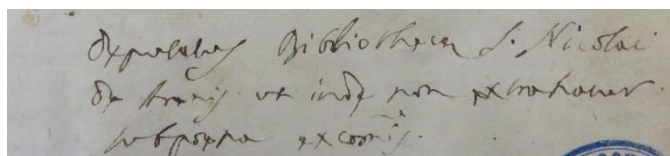 deputatus Bibliothecæ S. Nicolai
de Arenis ut inde non extrahatur
sub poena excōnis.